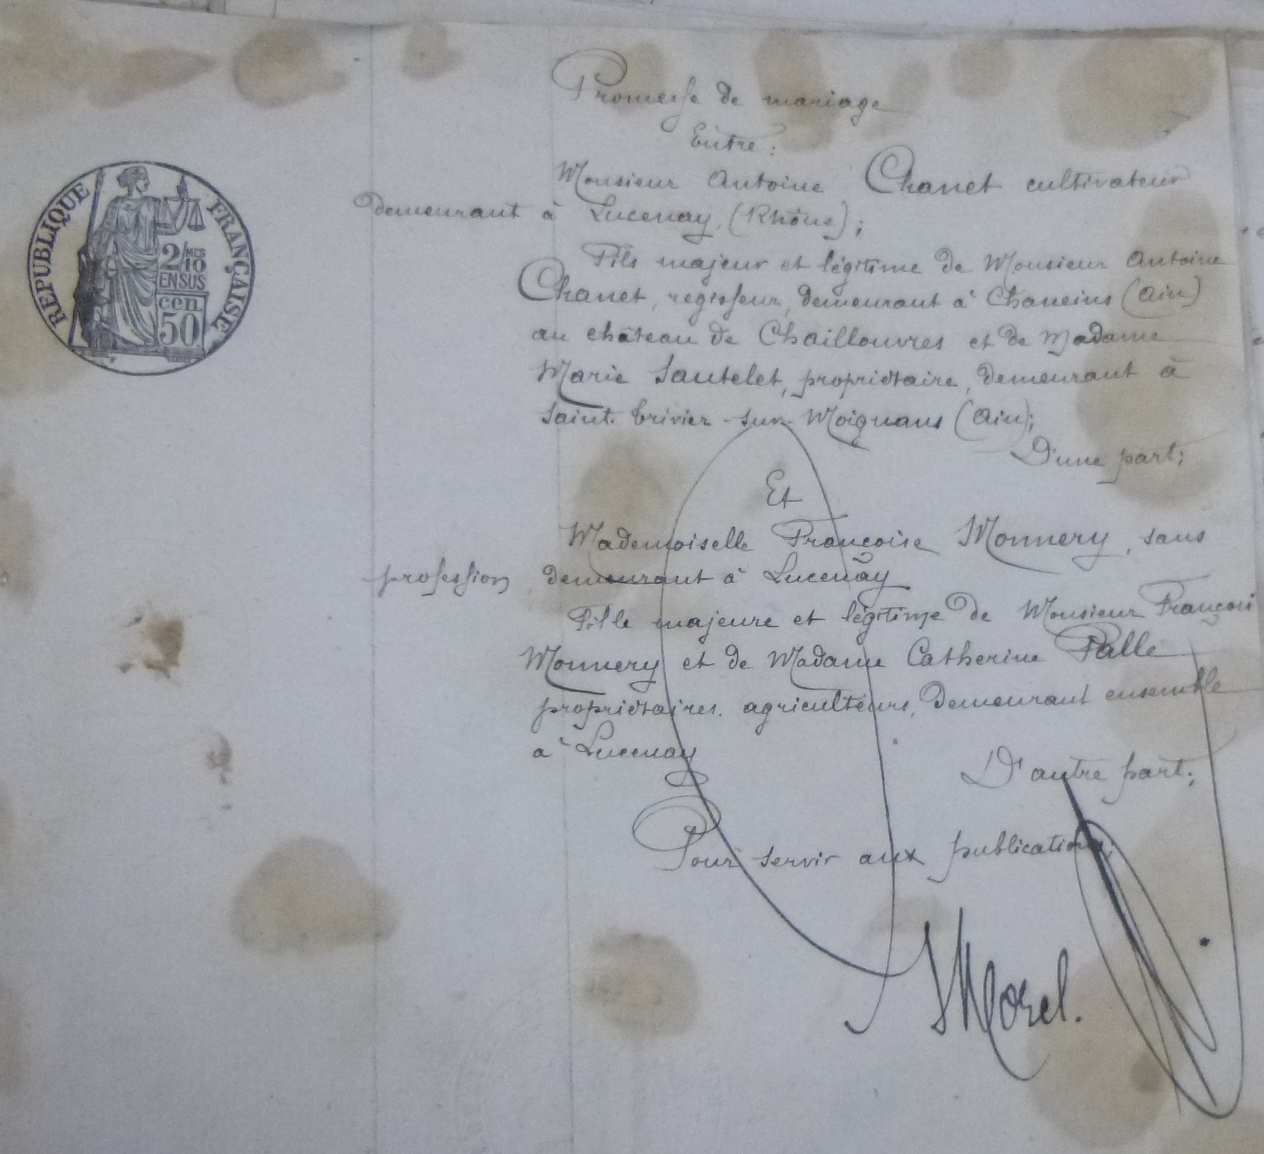 Promesse de mariage
Entre :
Monsieur Antoine Chanet cultivateur
demeurant à Lucenay, (Rhône) ;
Fils majeur et légitime de Monsieur Antoine
Chanet, régisseur, demeurant à Chaneins (Ain)
au château de Chaillouvres et de Madame
Marie Sautelet, propriétaire, demeurant à
Saint-Trivier-sur-Moignans (Ain) ;
D'une part ;
Et
Mademoiselle Françoise Monnery, sans
profession, demeurant à Lucenay
Fille majeure et légitime de Monsieur François
Monnery et de Madame Catherine Palle
propriétaires. agriculteurs, demeurant ensemble
à Lucenay
D'autre part ;
Pour servir aux publications.
Morel.
RÉPUBLIQUE FRANÇAISE
2/10 MES
EN SUS
cen
50